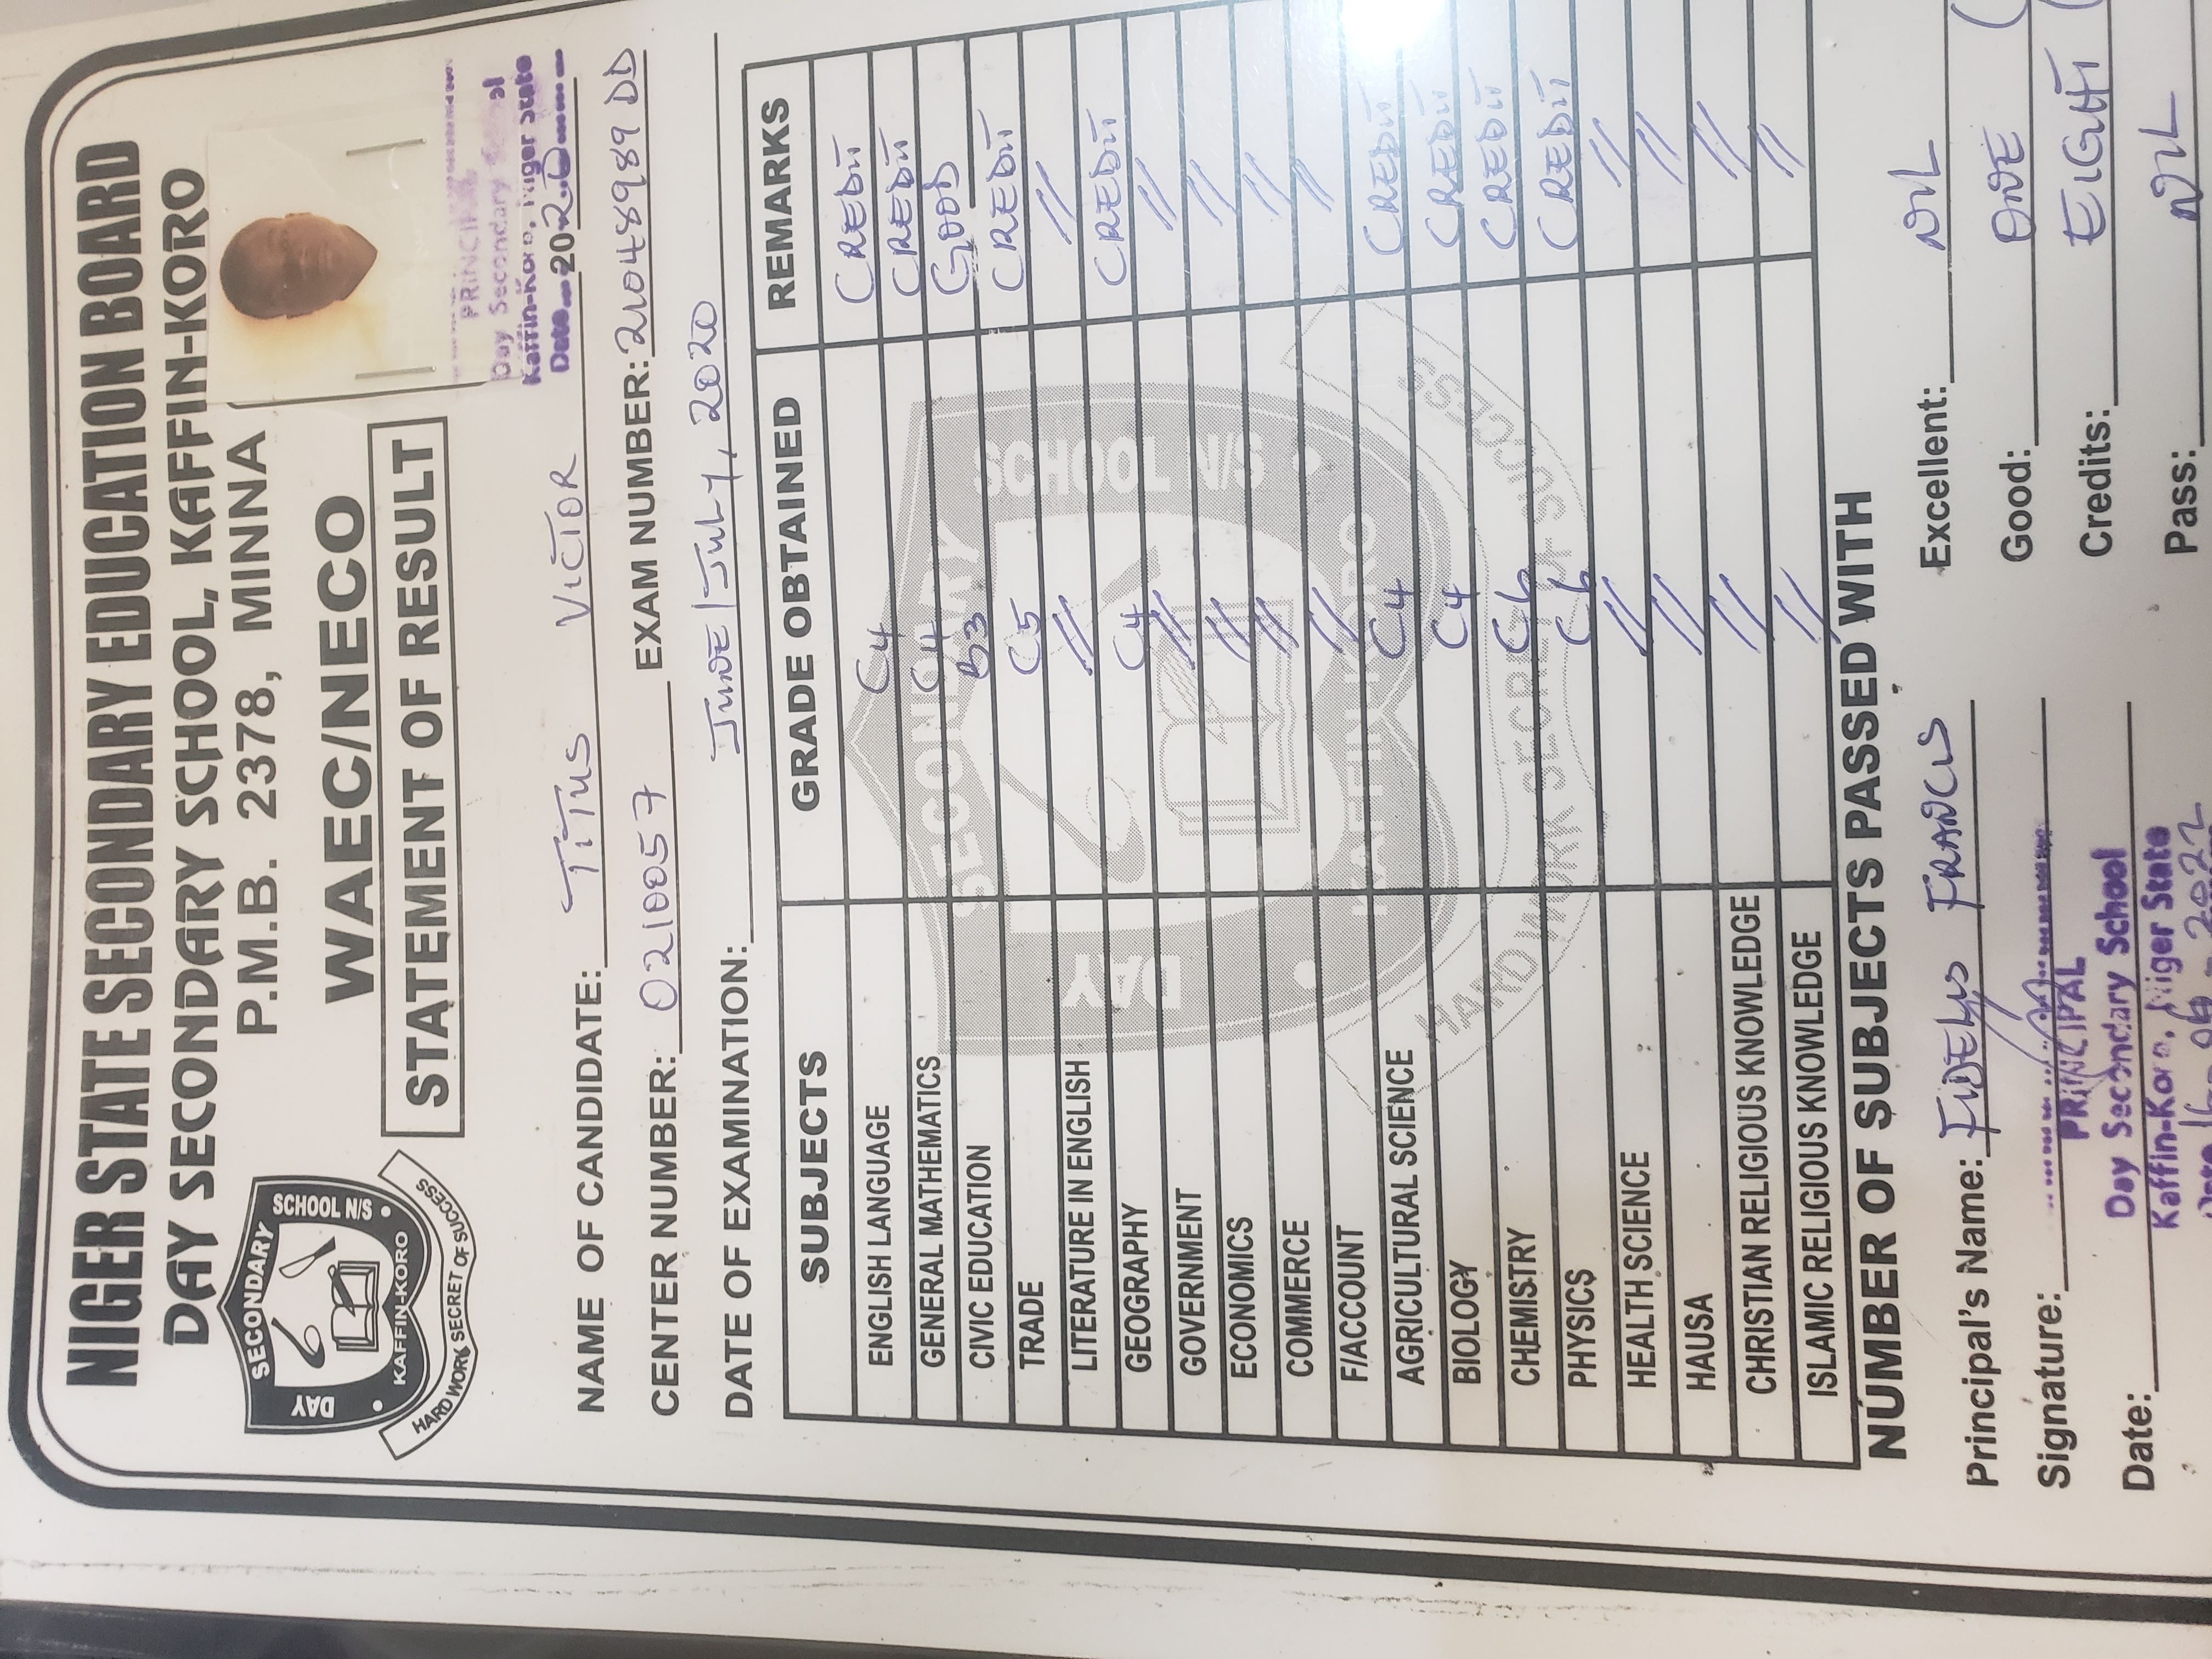 NIGER STATE SECONDARY EDUCATION BOARD
DAY SECONDARY SCHOOL, KAFFIN-KORO
P.M.B. 2378, MINNA
WAEC/NECO
STATEMENT OF RESULT
DAY SECONDARY SCHOOL N/S
KAFFIN-KORO
HARD WORK SECRET OF SUCCESS
PRINCIPAL
Day Secondary
Kaffin-Koro, Niger State
Date 2020
NAME OF CANDIDATE: TITUS VICTOR
CENTER NUMBER: 0210057 EXAM NUMBER: 21048989DD
DATE OF EXAMINATION: JUNE/JULY, 2020
SUBJECTS GRADE OBTAINED REMARKS
ENGLISH LANGUAGE C4 CREDIT
GENERAL MATHEMATICS C4 CREDIT
CIVIC EDUCATION B3 GOOD
TRADE C5 CREDIT
LITERATURE IN ENGLISH // //
GEOGRAPHY C4 CREDIT
GOVERNMENT // //
ECONOMICS // //
COMMERCE // //
F/ACCOUNT // //
AGRICULTURAL SCIENCE C4 CREDIT
BIOLOGY C4 CREDIT
CHEMISTRY C6 CREDIT
PHYSICS C6 CREDIT
HEALTH SCIENCE // //
HAUSA // //
CHRISTIAN RELIGIOUS KNOWLEDGE // //
ISLAMIC RELIGIOUS KNOWLEDGE // //
DAY SECONDARY SCHOOL N/S
KAFFIN-KORO
HARD WORK SECRET OF SUCCESS
NUMBER OF SUBJECTS PASSED WITH
Principal's Name: FIDELYS FRANCIS Excellent: NIL
Signature: Good: ONE
Date: Credits: EIGHT
Pass: NIL
PRINCIPAL
Day Secondary School
Kaffin-Koro, Niger State